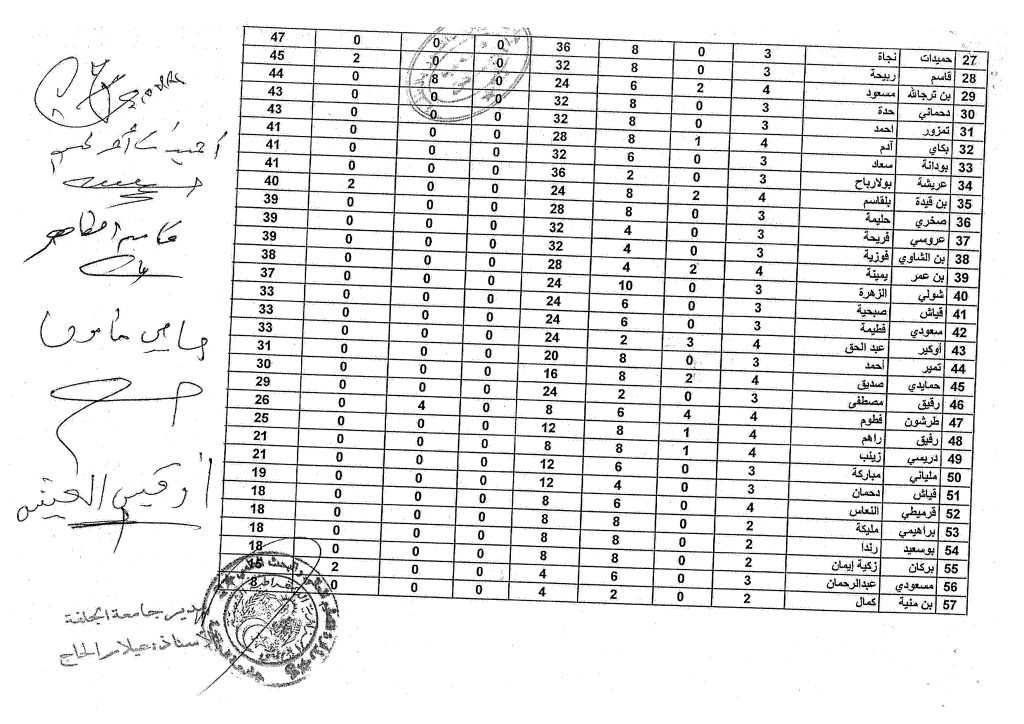 27 حميدات نجاة 3 0 8 36 0 0 0 47
28 قاسم ربيحة 3 0 8 32 0 0 2 45
29 بن ترجالله مسعود 4 2 6 24 0 8 0 44
30 دحماني حدة 3 0 8 32 0 0 0 43
31 تمزور احمد 3 0 8 32 0 0 0 43
32 بكاي آدم 4 1 8 28 0 0 0 41
33 بودانة سعاد 3 0 6 32 0 0 0 41
34 عريشة بولارباح 3 0 2 36 0 0 0 41
35 بن قيدة بلقاسم 4 2 8 24 0 0 2 40
36 صخري حليمة 3 0 8 28 0 0 0 39
37 عروسي فريحة 3 0 4 32 0 0 0 39
38 بن الشاوي فوزية 3 0 4 32 0 0 0 39
39 بن عمر يمينة 4 2 4 28 0 0 0 38
40 شولي الزهرة 3 0 10 24 0 0 0 37
41 قياش صبحية 3 0 6 24 0 0 0 33
42 سعودي فطيمة 3 0 6 24 0 0 0 33
43 أوكير عبد الحق 4 3 2 24 0 0 0 33
44 تمير أحمد 3 0 8 20 0 0 0 31
45 حمايدي صديق 4 2 8 16 0 0 0 30
46 رقيق مصطفى 3 0 2 24 0 0 0 29
47 طرشون فطوم 4 4 6 8 0 4 0 26
48 رفيق راهم 4 1 8 12 0 0 0 25
49 دريسي زينب 4 1 8 8 0 0 0 21
50 ملياني مباركة 3 0 6 12 0 0 0 21
51 قياش دحمان 3 0 4 12 0 0 0 19
52 قرميطي النعاس 4 0 6 8 0 0 0 18
53 براهيمي مليكة 2 0 8 8 0 0 0 18
54 بوسعيد رندا 2 0 8 8 0 0 0 18
55 بركان زكية إيمان 2 0 8 8 0 0 0 18
56 مسعودي عبدالرحمان 3 0 6 4 0 0 2
57 بن منية كمال 2 0 2 4 0 0 0 8
قاسم الطاهر
مدير جامعة الجلفة